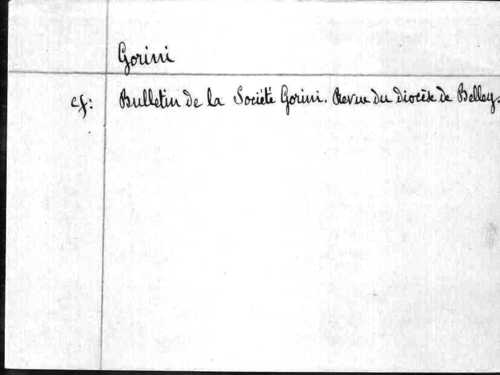 Gorini
cf: Bulletin de la Société Gorini. Revue du diocèse de Belley.